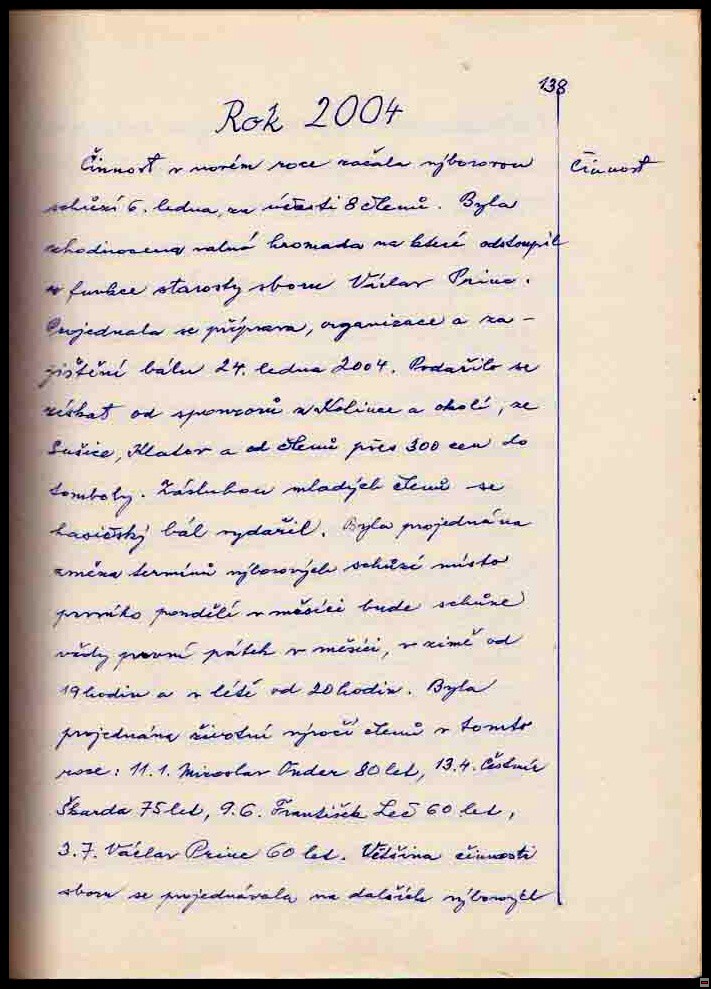 138
Rok 2004
Činnost v novém roce začala výborovou
Činnost
schůzí 6. ledna, za účasti 8 členů. Byla
zhodnocena valná hromada na které odstoupil
z funkce starosty sboru Václav Princ.
Projednala se příprava, organizace a za-
jištění bálu 24. ledna 2004. Podařilo se
získat od sponzorů z Kolince a okolí, ze
Sušice, Klatov a od členů přes 300 cen do
tomboly. Zásluhou mladých členů se
hasičský bál vydařil. Byla projednána
změna termínů výborových schůzí místo
prvního pondělí v měsíci bude schůze
vždy první pátek v měsíci, v zimě od
19 hodin a v létě od 20 hodin. Byla
projednána životní výročí členů v tomto
roce: 11.1. Miroslav 80 let, 13.4. Čestmír
Škarda 75 let, 9.6. František Leč 60 let,
3.7. Václav Princ 60 let. Většina činnosti
sboru se projednávala na dalších výborových